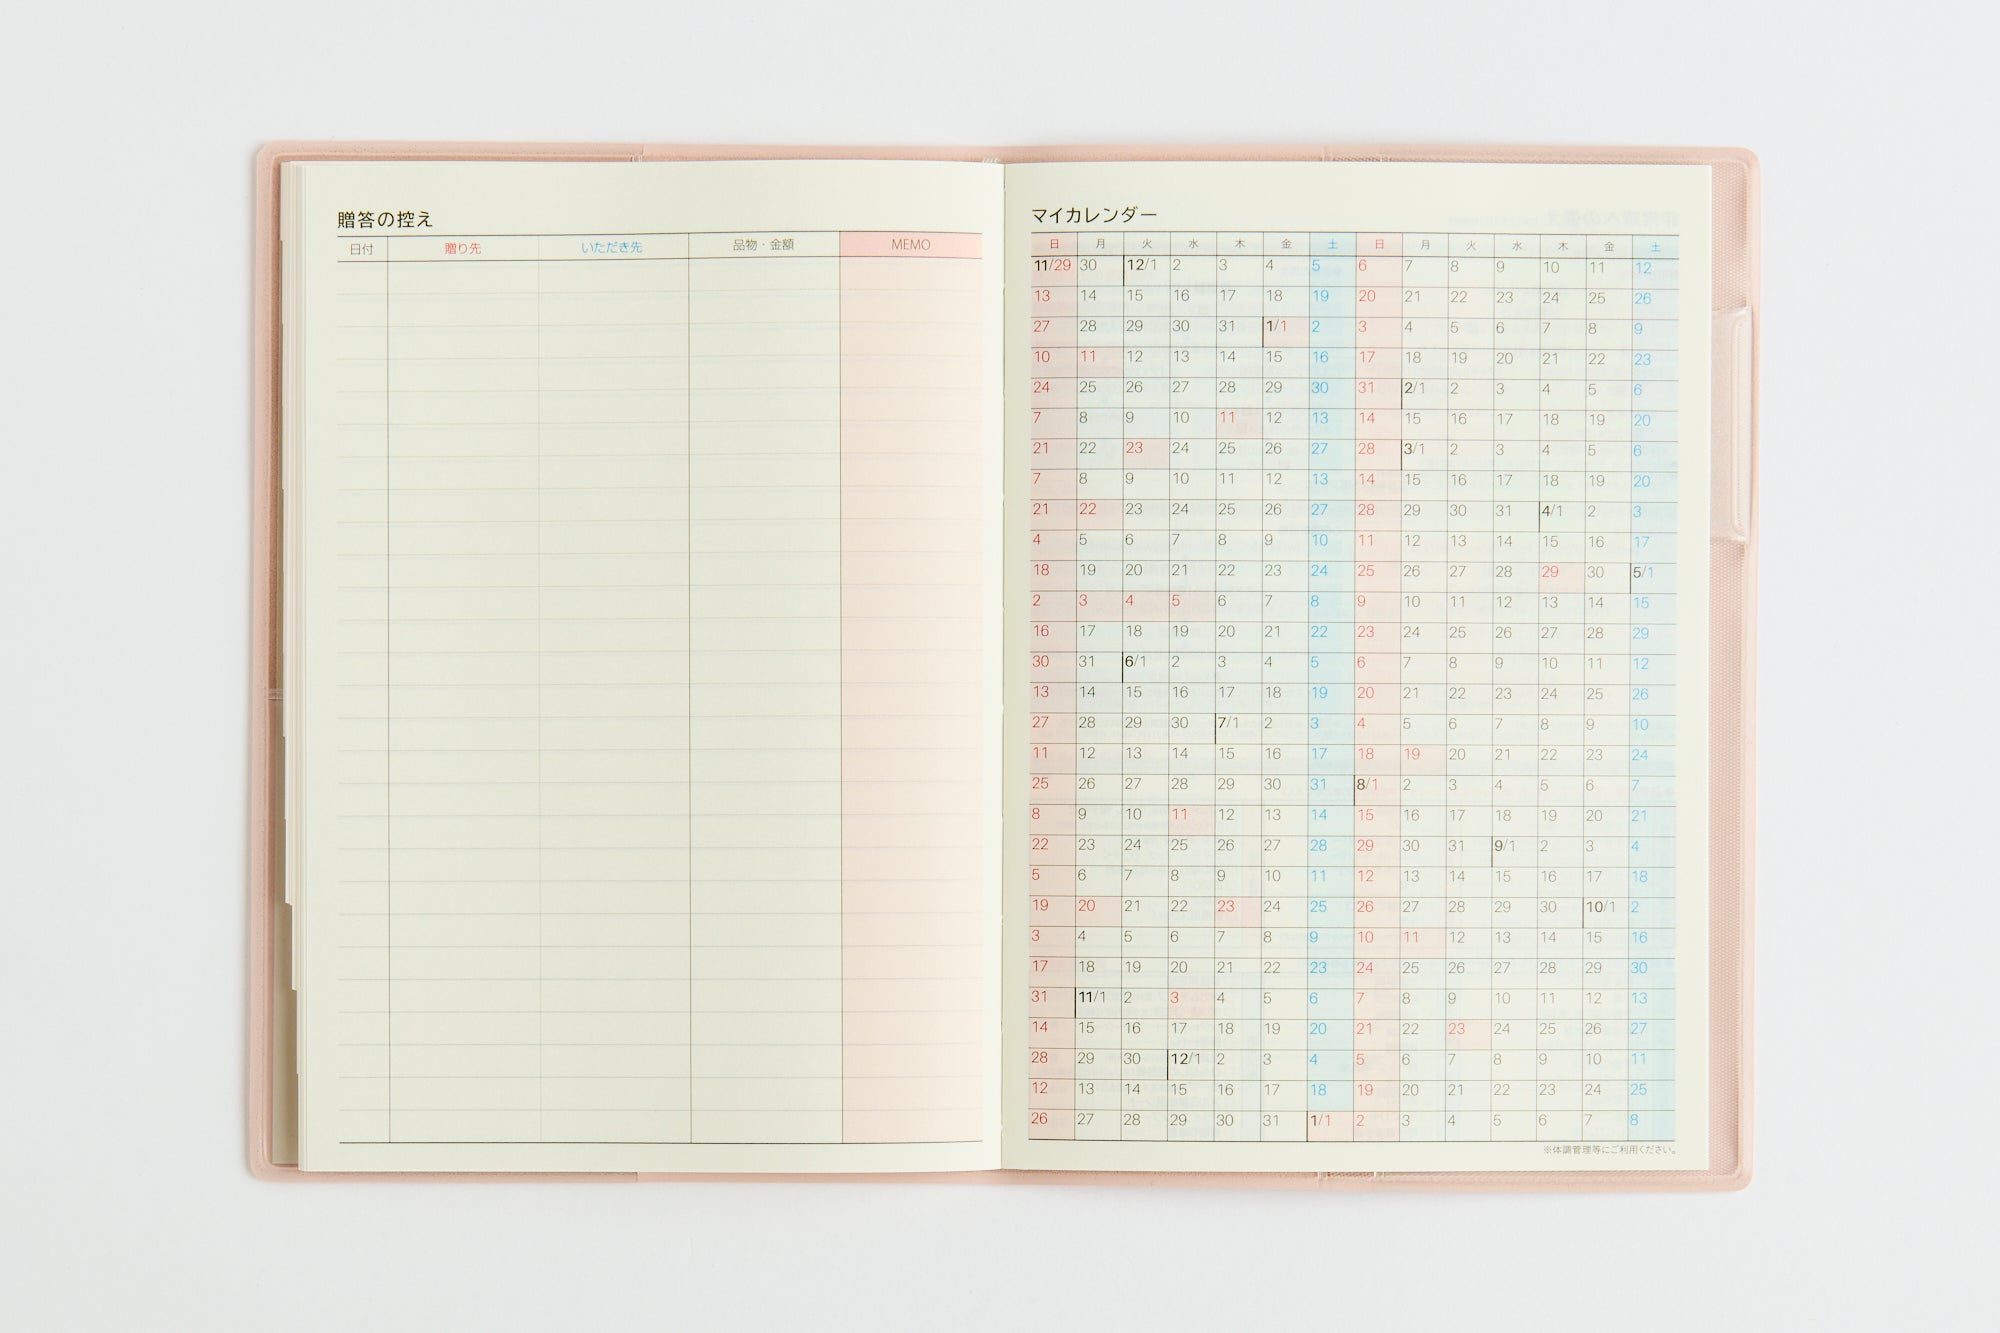 贈答の控え
日付 贈り先 いただき先 品物・金額 MEMO
マイカレンダー
日 月 火 水 木 金 土 日 月 火 水 木 金 土
11/29 30 12/1 2 3 4 5 6 7 8 9 10 11 12
13 14 15 16 17 18 19 20 21 22 23 24 25 26
27 28 29 30 31 1/1 2 3 4 5 6 7 8 9
10 11 12 13 14 15 16 17 18 19 20 21 22 23
24 25 26 27 28 29 30 31 2/1 2 3 4 5 6
7 8 9 10 11 12 13 14 15 16 17 18 19 20
21 22 23 24 25 26 27 28 3/1 2 3 4 5 6
7 8 9 10 11 12 13 14 15 16 17 18 19 20
21 22 23 24 25 26 27 28 29 30 31 4/1 2 3
4 5 6 7 8 9 10 11 12 13 14 15 16 17
18 19 20 21 22 23 24 25 26 27 28 29 30 5/1
2 3 4 5 6 7 8 9 10 11 12 13 14 15
16 17 18 19 20 21 22 23 24 25 26 27 28 29
30 31 6/1 2 3 4 5 6 7 8 9 10 11 12
13 14 15 16 17 18 19 20 21 22 23 24 25 26
27 28 29 30 7/1 2 3 4 5 6 7 8 9 10
11 12 13 14 15 16 17 18 19 20 21 22 23 24
25 26 27 28 29 30 31 8/1 2 3 4 5 6 7
8 9 10 11 12 13 14 15 16 17 18 19 20 21
22 23 24 25 26 27 28 29 30 31 9/1 2 3 4
5 6 7 8 9 10 11 12 13 14 15 16 17 18
19 20 21 22 23 24 25 26 27 28 29 30 10/1 2
3 4 5 6 7 8 9 10 11 12 13 14 15 16
17 18 19 20 21 22 23 24 25 26 27 28 29 30
31 11/1 2 3 4 5 6 7 8 9 10 11 12 13
14 15 16 17 18 19 20 21 22 23 24 25 26 27
28 29 30 12/1 2 3 4 5 6 7 8 9 10 11
12 13 14 15 16 17 18 19 20 21 22 23 24 25
26 27 28 29 30 31 1/1 2 3 4 5 6 7 8
※体調管理等にご利用ください。